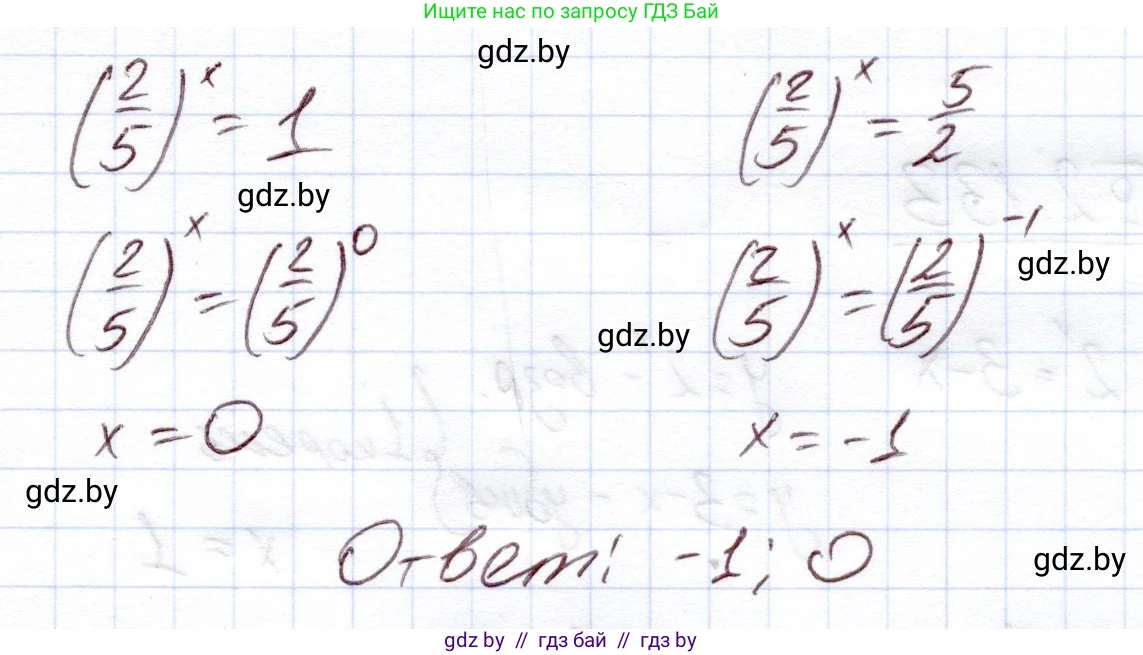 Ищите нас по запросу ГДЗ Бай
gdz.by
(2/5)^x = 1
(2/5)^x = 5/2
gdz.by
(2/5)^x = (2/5)^0
(2/5)^x = (2/5)^-1
gdz.by
gdz.by
x = 0
x = -1
gdz.by
Ответ: -1; 0
gdz.by
gdz.by // гдз бай // гдз by